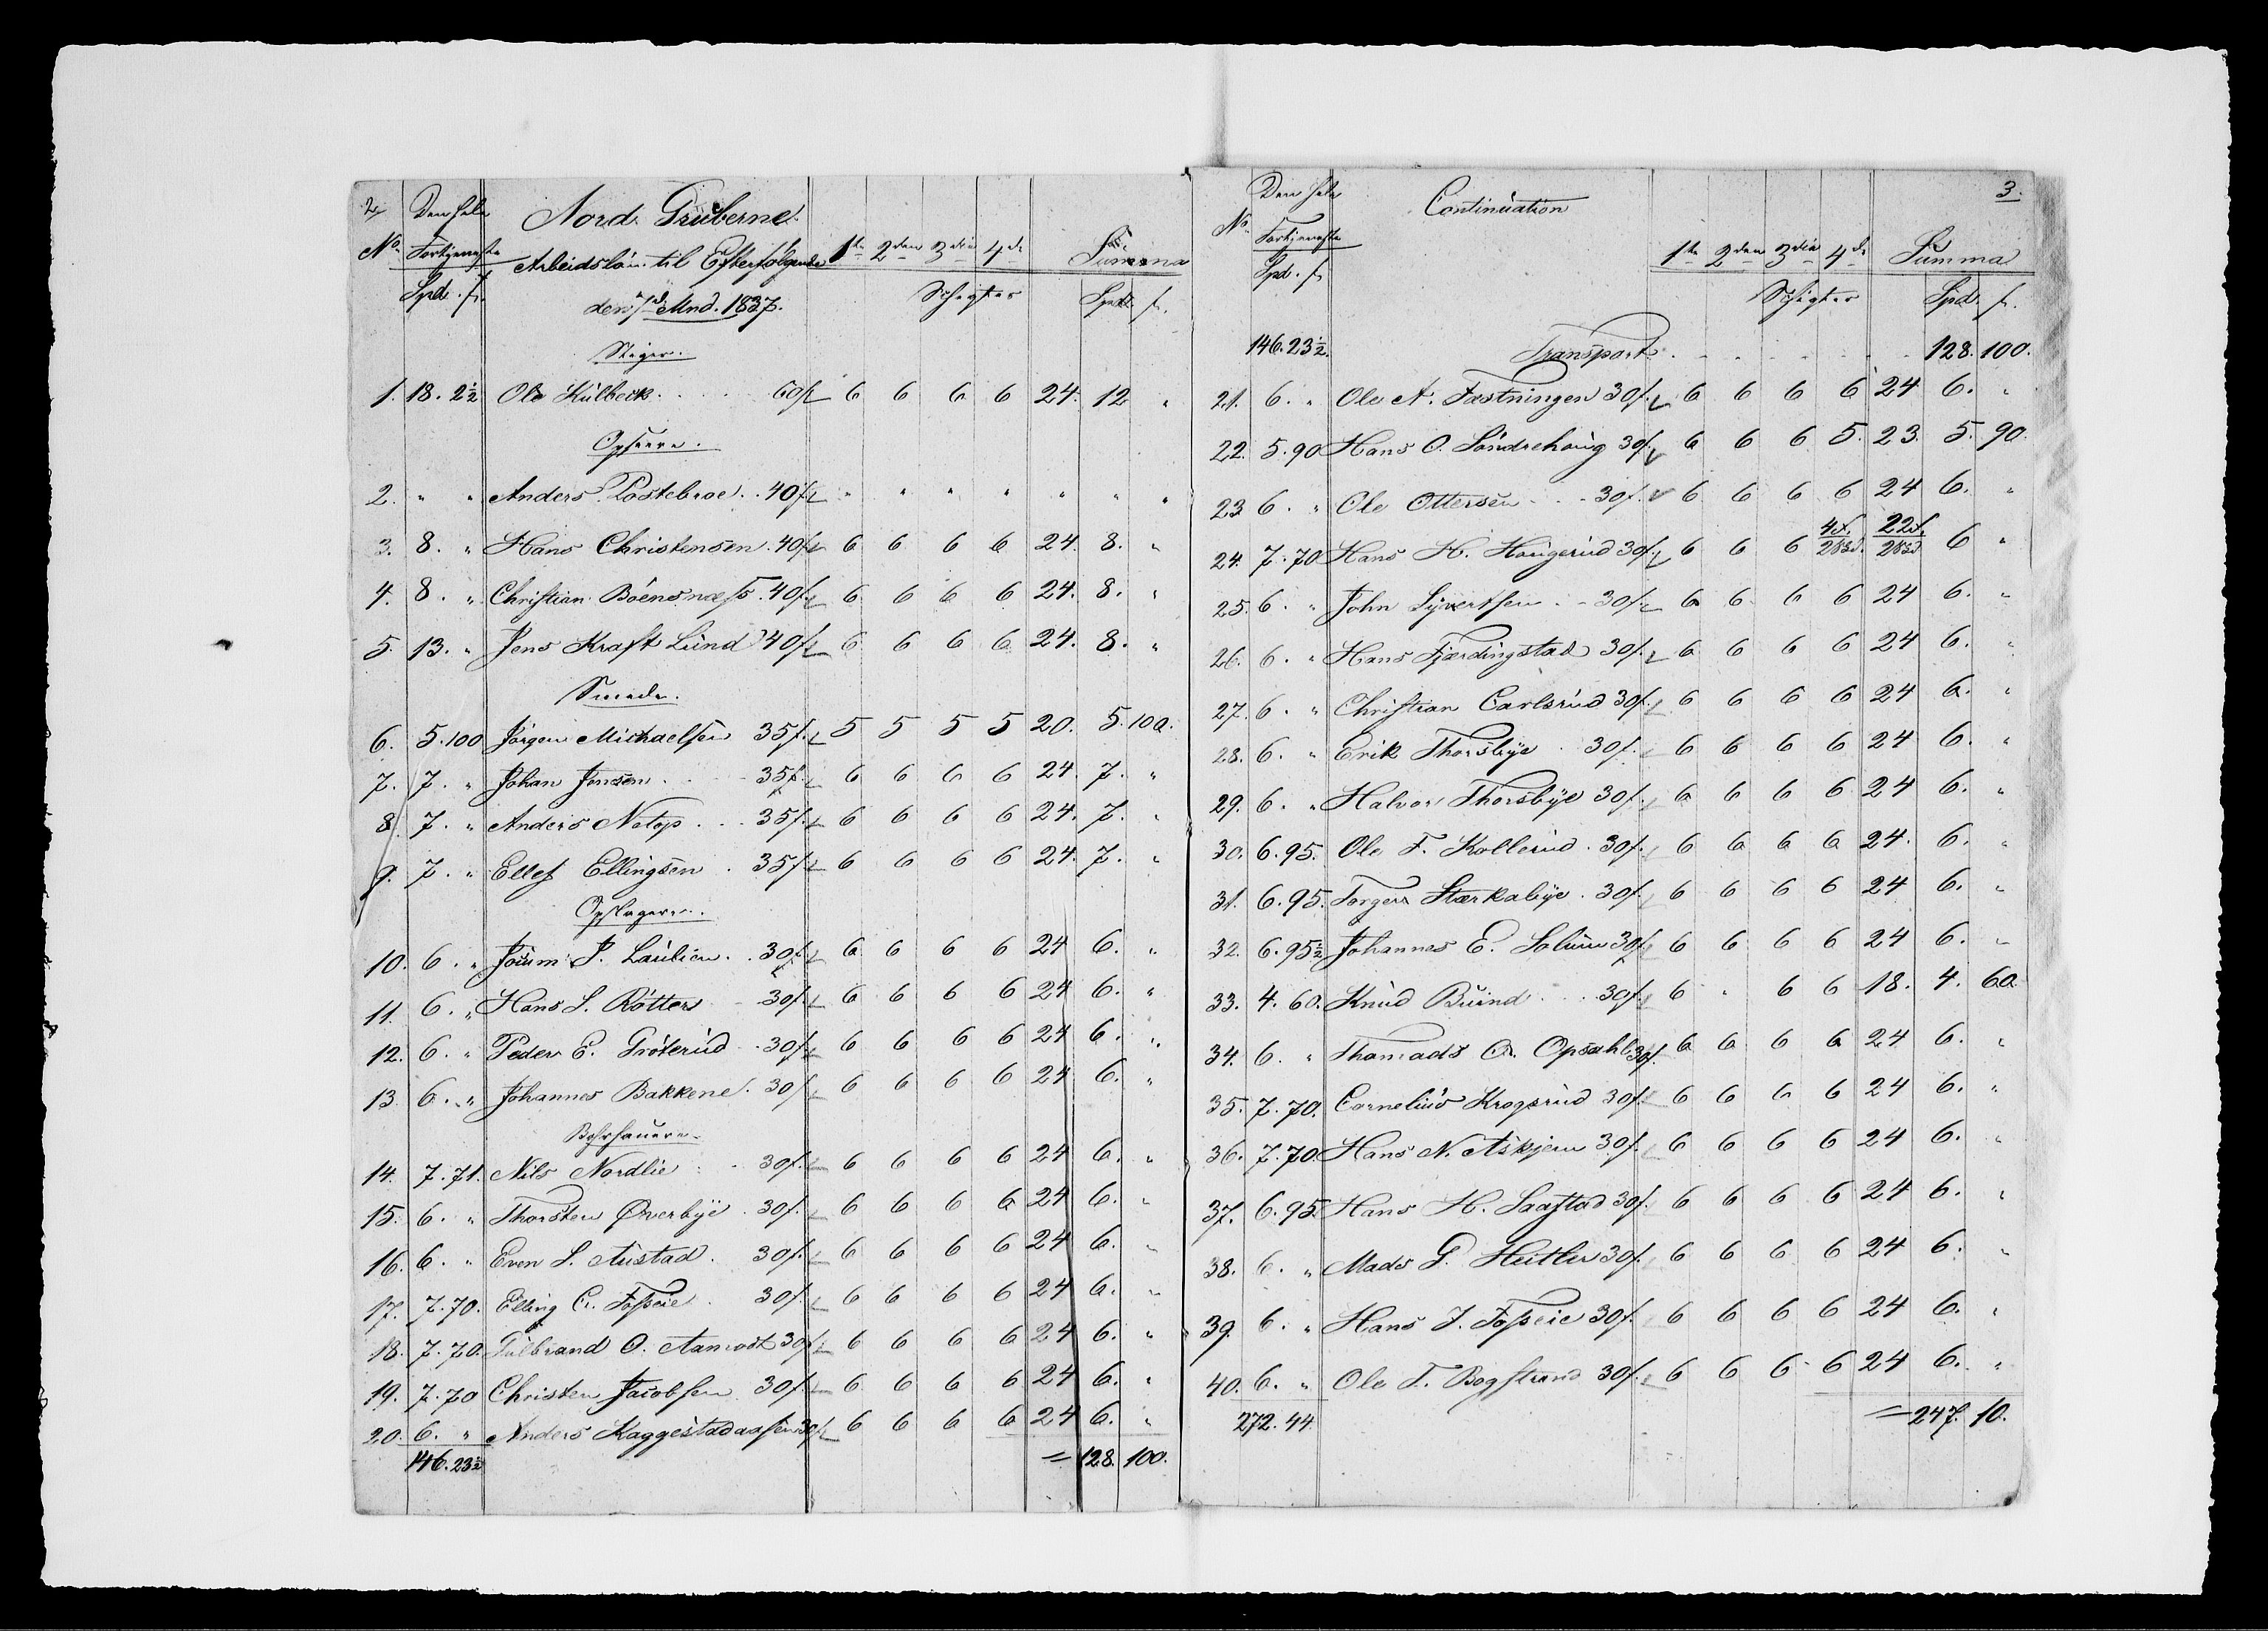 2
Den hele Nord Gruberne
No Fortjeneste Arbeidsløn til Efterfølgende 1te 2den 3die 4de Summa
Spd. ß. den 7de Mnd. 1837. Schigter Spd. ß.
Steiger.
1. 18. 2½ Ole Kulbeck 60ß 6 6 6 6 24. 12 "
Opseere.
2. " " Anders Postebroe 40ß " " " " " " "
3. 8. " Hans Christensen 40ß 6 6 6 6 24. 8. "
4. 8. " Christian Böensnæss 40ß 6 6 6 6 24. 8. "
5. 13. " Jens Kraft Lund 40ß 6 6 6 6 24. 8. "
Smede.
6. 5.100 Jörgen Michaelsen 35ß 5 5 5 5 20. 5. 100.
7. 7. " Johan Jensen 35ß 6 6 6 6 24. 7. "
8. 7. " Anders Netop 35ß 6 6 6 6 24. 7. "
9. 7. " Ellef Ellingsen 35ß 6 6 6 6 24. 7. "
Opslagere.
10. 6. " Joum J. Laubien 30ß 6 6 6 6 24 6. "
11. 6. " Hans S. Rötter 30ß 6 6 6 6 24 6. "
12. 6. " Peder E. Gröterud 30ß 6 6 6 6 24 6. "
13. 6. " Johannes Bakkene 30ß 6 6 6 6 24 6. "
Bohrhauere.
14. 7.71. Nils Nordlie 30ß 6 6 6 6 24 6. "
15. 6. " Thorsten Øverbye 30ß 6 6 6 6 24 6. "
16. 6. " Even S. Austad 30ß 6 6 6 6 24 6. "
17. 7.70. Elling C. Fosseie 30ß 6 6 6 6 24 6. "
18. 7.70. Gulbrand O. Aamodt 30ß 6 6 6 6 24 6. "
19. 7.70 Christen Jacobsen 30ß 6 6 6 6 24 6. "
20. 6. " Anders Kaggestadaasen 30ß 6 6 6 6 24 6. "
146.23½ = 128. 100.
3.
Den hele Continuation
No Fortjeneste 1te 2den 3die 4de Summa
Spd. ß. Schigter Spd. ß.
146.23½. Transport 128. 100.
21. 6. " Ole A. Fæstningen 30ß 6 6 6 6 24 6. "
22. 5.90 Hans O. Söndrehaug 30ß 6 6 6 5. 23. 5. 90.
23 6. " Ole Ottersen 30ß 6 6 6 6 24 6. "
24. 7.70 Hans H. Haugerud 30ß 6 6 6 6 "
25. 6. " John Syvertsen 30ß 6 6 6 6 24 6. "
26. 6. " Hans Fjerdingstad 30ß 6 6 6 6 24 6. "
27. 6. " Christian Carlsrud 30ß 6 6 6 6 24 6. "
28. 6. " Erik Thorsbye 30ß 6 6 6 6 24 6. "
29. 6. " Halvor Thorsbye 30ß 6 6 6 6 24 6. "
30. 6.95. Ole F. Kollerud 30ß 6 6 6 6 24. 6. "
31. 6.95. Torger Stærkabye 30ß 6 6 6 6 24 6. "
32. 6.95½ Johannes E. Solum 30ß 6 6 6 6 24 6. "
33. 4.60. Knud Buind 30ß 6 " 6 6 18. 4. 60
34. 6. " Thomads A. Opsahl 30ß 6 6 6 6 24 6. "
35. 7.70. Cornelius Krogsrud 30ß 6 6 6 6 24 6. "
36. 7.70. Hans N. Askjem 30ß 6 6 6 6 24 6. "
37. 6.95. Hans H. Saastad 30ß 6 6 6 6 24 6. "
38. 6. " Mads G. Hutler 30ß 6 6 6 6 24 6. "
39. 6. " Hans J. Fosseie 30ß 6 6 6 6 24 6. "
40. 6. " Ole T. Bogstrand 30ß 6 6 6 6 24 6. "
272.44 = 247. 10.